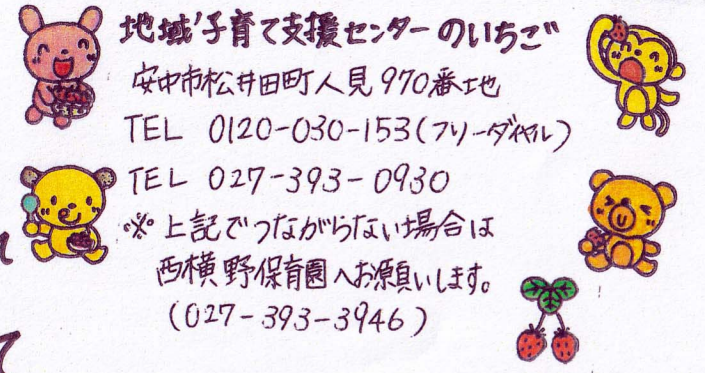 地域子育て支援センターのいちご
安中市松井田町人見970番地
TEL 0120-030-153(フリーダイヤル)
TEL 027-393-0930
※上記でつながらない場合は
西横野保育園へお願いします。
(027-393-3946)